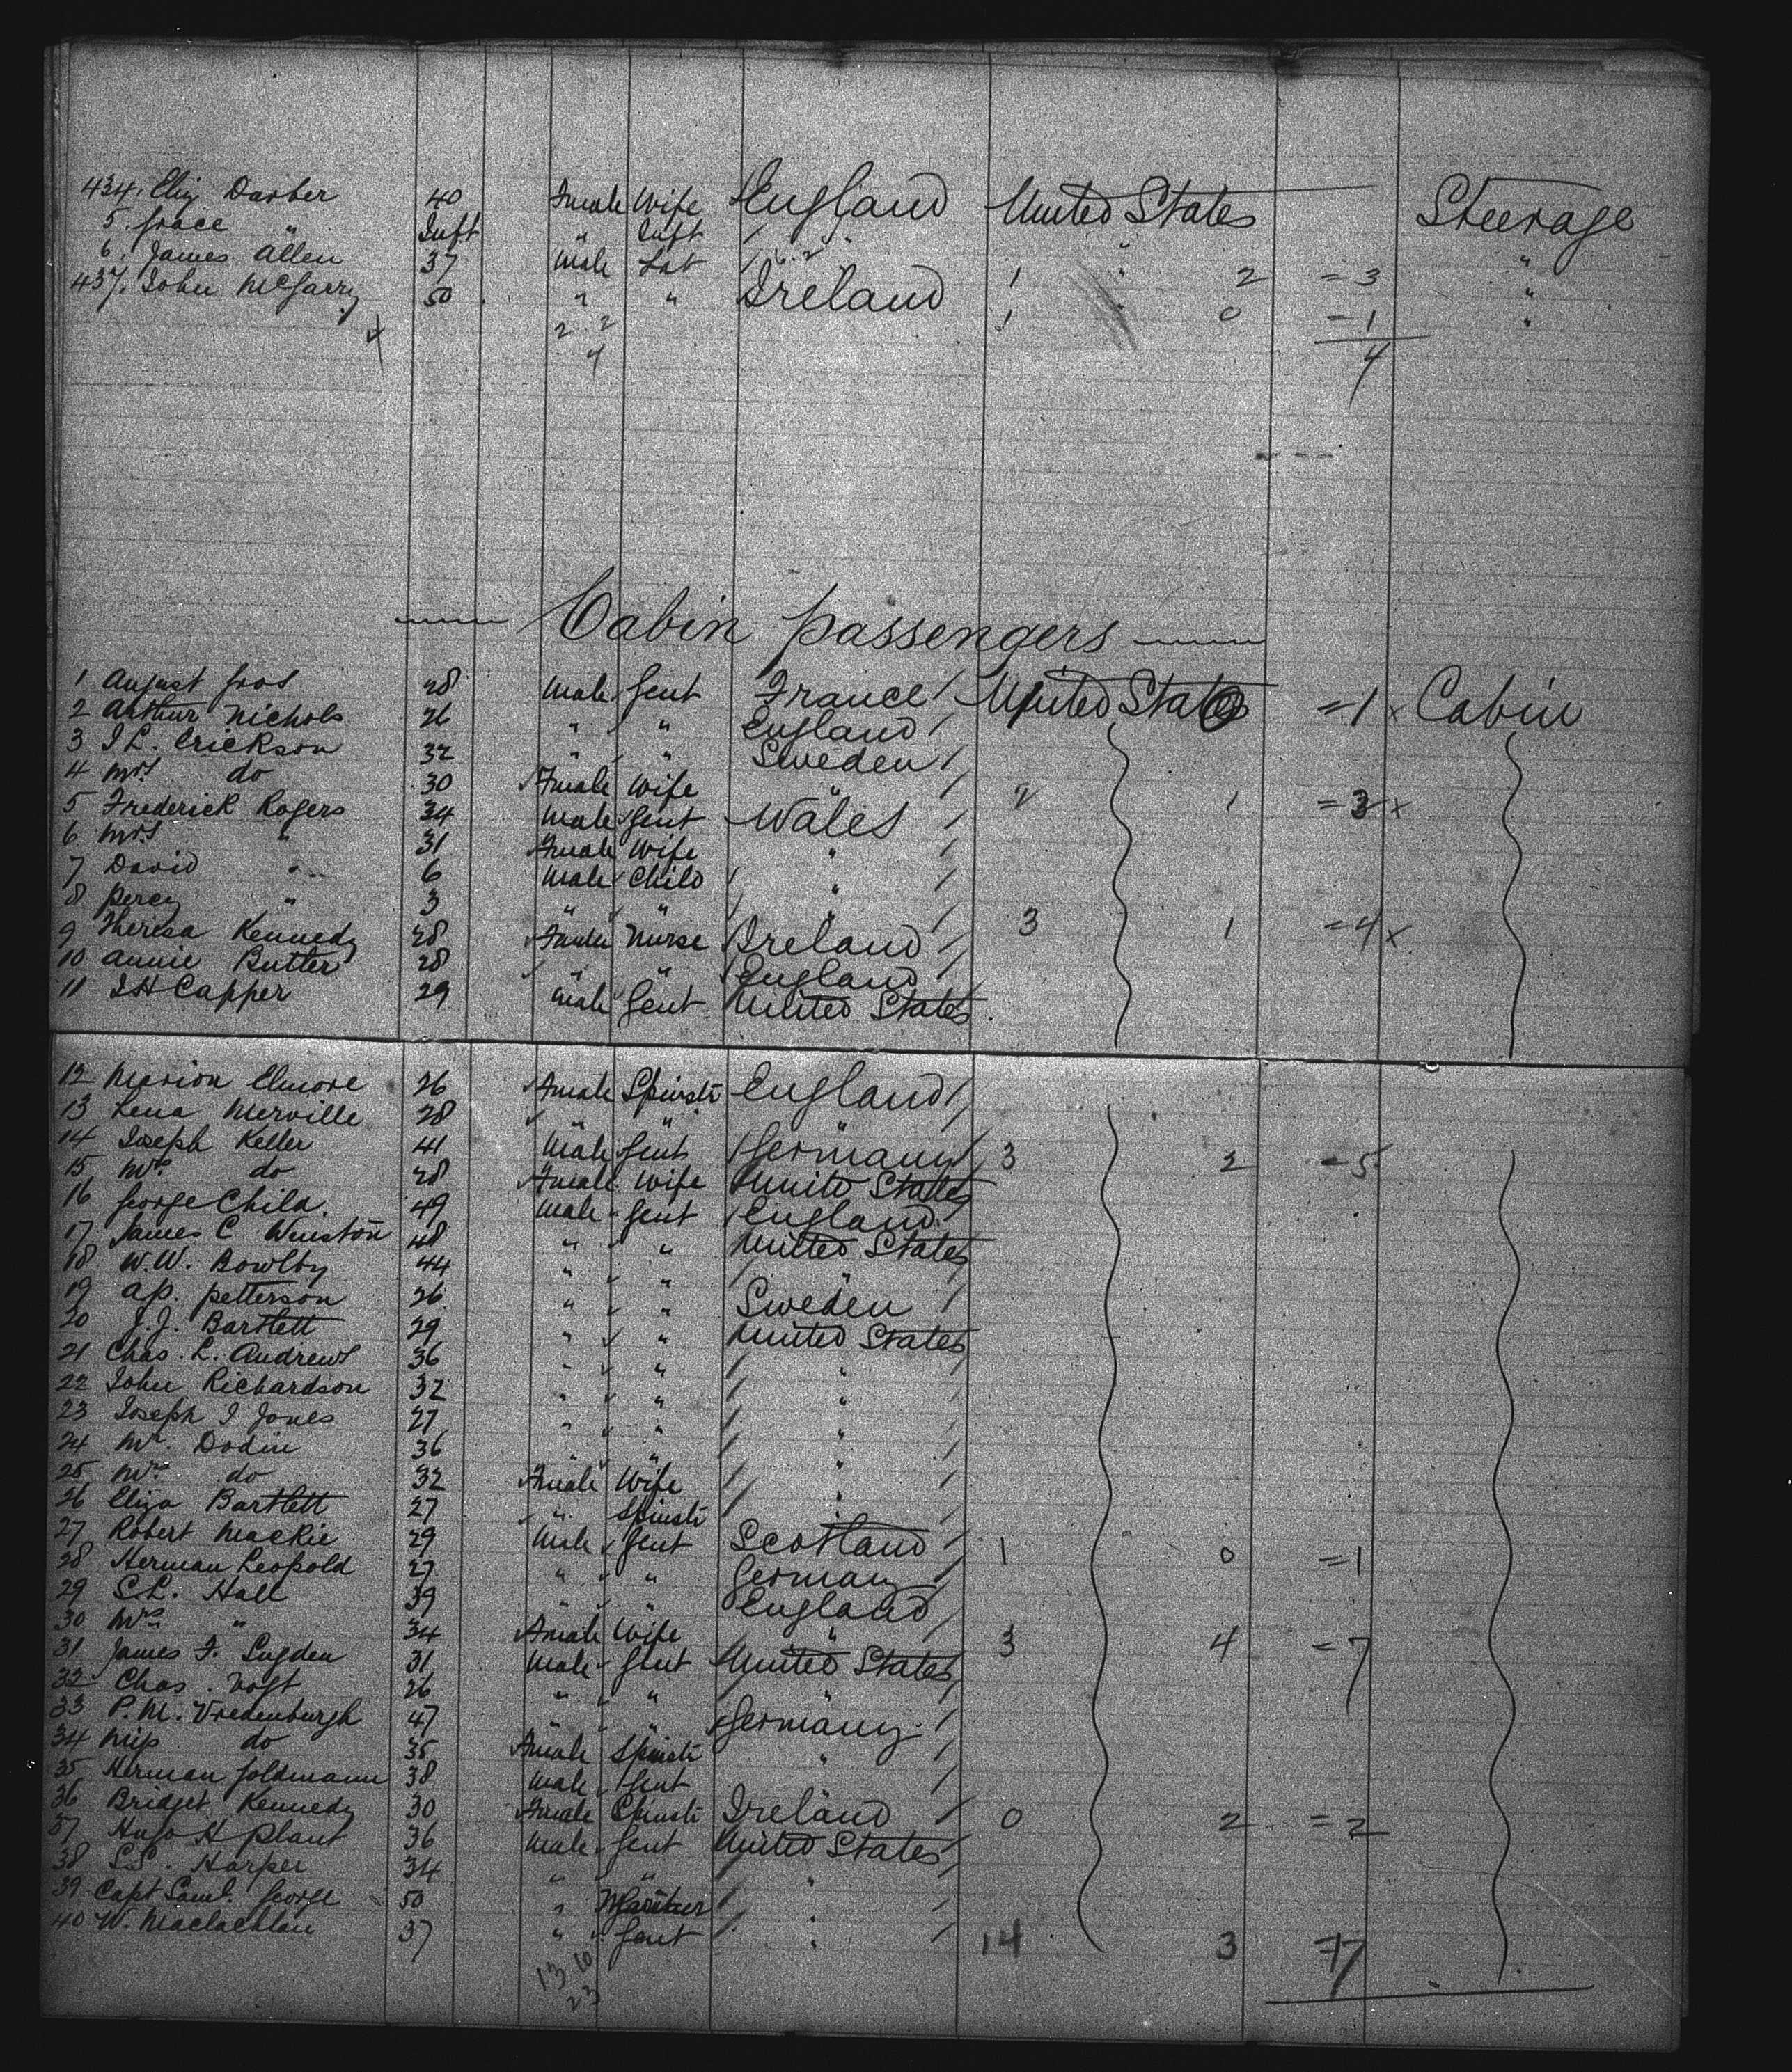 434. Eliz Darber 40 Female Wife England United States Steerage
5. Grace " Inft " Inft
6. James Allen 37 Male Lab " " 1 2 = 3 "
437. John McGarry 50 " " Ireland 1 " 0 = 1 "
4 2 2 4
4
Cabin passengers
1 August Gros 28 Male Gent France United States = 1 x Cabin
2 Arthur Nichols 26 " " England
3 J L. Erickson 32 " " Sweden
4 Mrs do 30 Female Wife " 2 1 = 3 x
5 Frederick Rogers 34 Male Gent Wales
6 Mrs " 31 Female Wife "
7 David " 6 Male Child "
8 Percy " 3 " " " 3 1 = 4 x
9 Theresa Kennedy 28 Female Nurse Ireland
10 Annie Butter 28 " " England
11 J H Capper 29 Male Gent United States
12 Marion Elmore 26 Female Spinstr England
13 Lena Merville 28 " " "
14 Joseph Keller 41 Male Gent Germany 3 2 = 5
15 Mrs do 28 Female Wife United States
16 George Child. 49 Male Gent England
17 James C Winston 48 " " United States
18 W.W. Bowlby 44 " " "
19 A.P. Petterson 26 " " Sweden
20 J.J. Bartlett 29 " " United States
21 Chas. L. Andrews 36 " " "
22 John Richardson 32 " " "
23 Joseph J Jones 27 " " "
24 Mr. Dodin 36 " " "
25 Mrs do 32 Female Wife "
26 Eliza Bartlett 27 " Spinstr "
27 Robert Mackie 29 Male Gent Scotland 1 0 = 1
28 Herman Leopold 27 " " Germany
29 S.L. Hall 39 " " England
30 Mrs " 34 Female Wife " 3 4 = 7
31 James F. Sugden 31 Male Gent United States
32 Chas. Vogt 26 " " "
33 P.M. Vredenburgh 47 " " Germany
34 Miss do 35 Female Spinstr "
35 Herman Goldmann 38 Male Gent
36 Bridget Kennedy 30 Female Spinstr Ireland 0 2 = 2
37 Hugo H Plant 36 Male Gent United States
38 S.S. Harper 34 " " "
39 Capt Saml. George 50 " Mariner "
40 W. Maclachlan 37 " Gent " 14 3 17
13 10
23